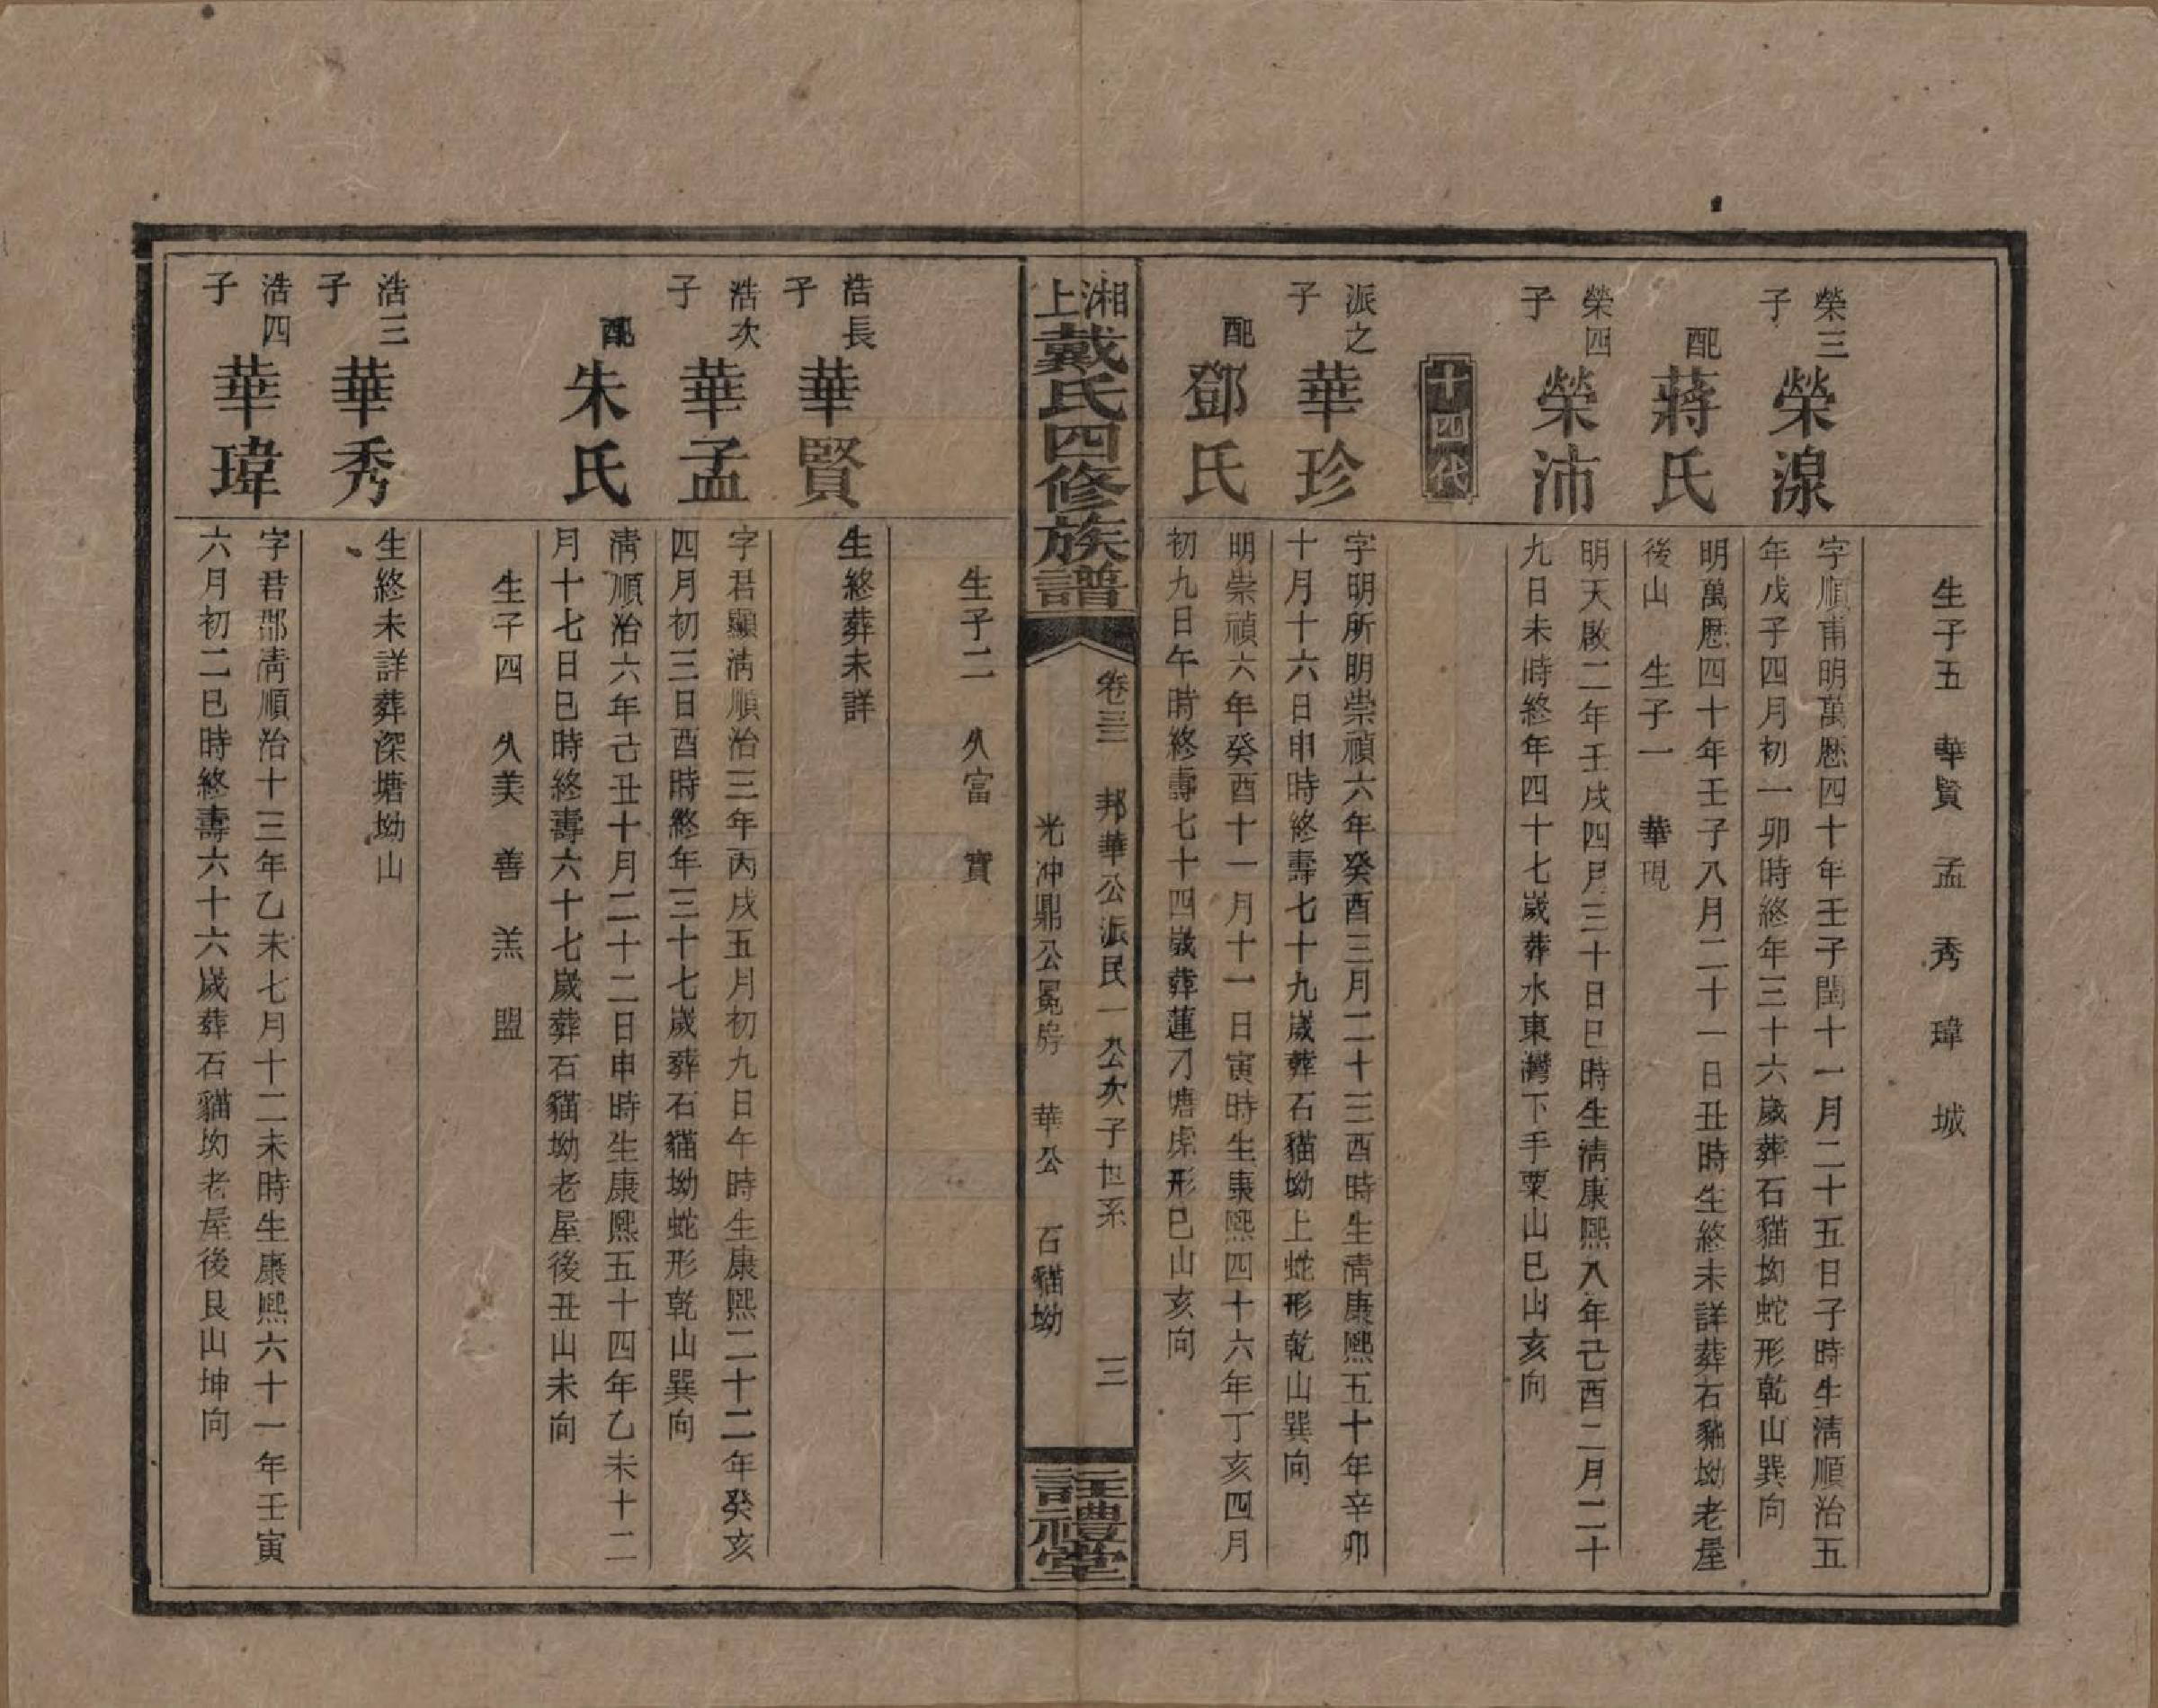 生子五 華賢 孟 秀 瑋 城
榮三子 榮湶
字順甫明萬厯四十年壬子閏十一月二十五日子時生淸順治五
年戊子四月初一卯時終年三十六歲葬石貓坳蛇形乾山巽向
配 蔣氏
明萬厯四十年壬子八月二十一日丑時生終未詳葬石貓坳老屋
後山 生子一 華現
榮四子 榮沛
明天啟二年壬戌四月三十日巳時生淸康熙八年己酉二月二十
九日未時終年四十七歲葬水東灣下手粟山巳山亥向
十四代
派之子 華珍
字明所明崇禎六年癸酉三月二十三酉時生淸康熙五十年辛卯
十月十六日申時終壽七十九歲葬石貓坳上蛇形乾山巽向
配 鄧氏
明崇禎六年癸酉十一月十一日寅時生康熙四十六年丁亥四月
初九日午時終壽七十四歲葬蓮刀塘虎形巳山亥向
湘上戴氏四修族譜
卷三 邦華公派民一公次子世系 三
光沖鼎公冕房 華公 石貓坳
註禮堂
生子二 久富 實
浩長子 華賢
生終葬未詳
浩次子 華孟
字君顯淸順治三年丙戌五月初九日午時生康熙二十二年癸亥
四月初三日酉時終年三十七歲葬石貓坳蛇形乾山巽向
配 朱氏
淸順治六年己丑十月二十二日申時生康熙五十四年乙未十二
月十七日巳時終壽六十七歲葬石貓坳老屋後丑山未向
生子四 久美 善 羔 盟
浩三子 華秀
生終未詳葬深塘坳山
浩四子 華瑋
字君郡淸順治十三年乙未七月十二未時生康熙六十一年壬寅
六月初二巳時終壽六十六歲葬石貓坳老屋後艮山坤向